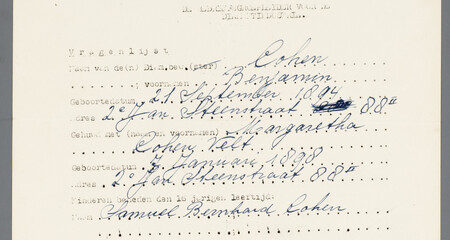 V r a g e n l i j s t
Naam van de(n) Diam.bew.(ster) Cohen
voornamen Benjamin
Geboortedatum 21 September 1894
Adres 2e Jan Steenstraat 88 II
Gehuwd met (naam en voornamen) Margaretha
Cohen Velt
Geboortedatum 7 Januari 1898
Adres 2e Jan Steenstraat 88 II
Kinderen beneden den 16 jarigen leeftijd:
Naam Samuel Bernhard Cohen